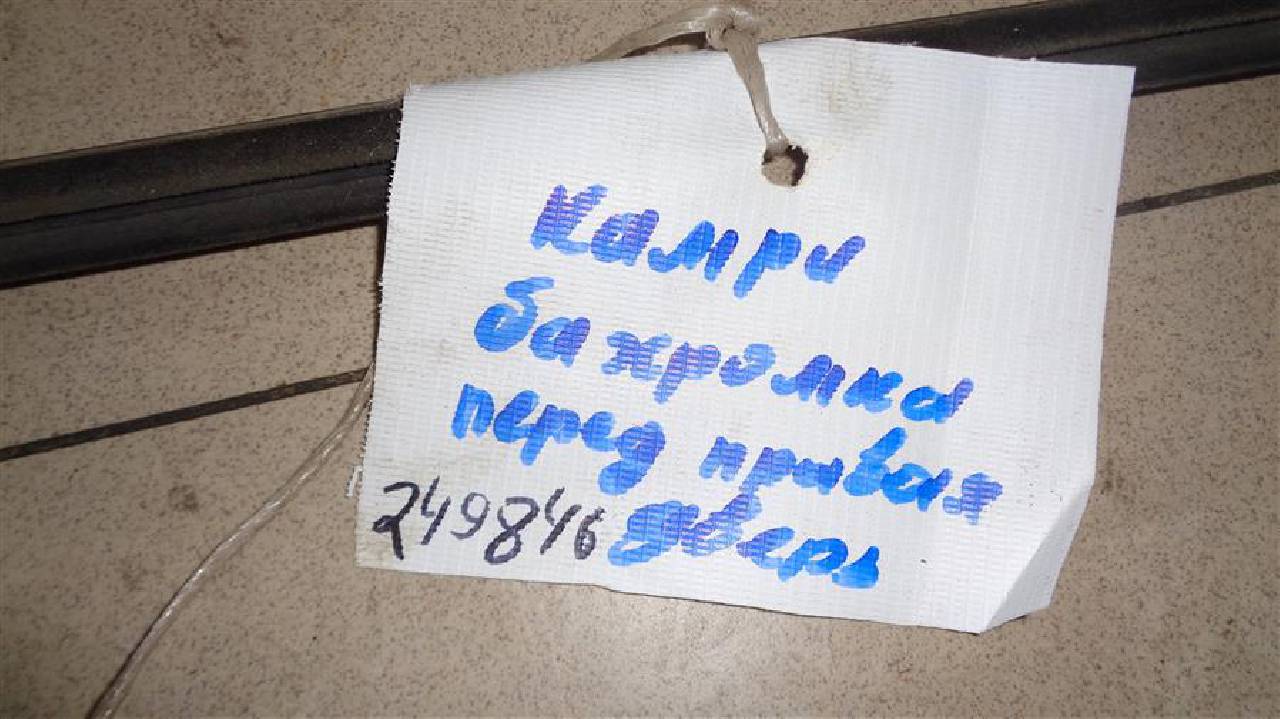 Камри
бахромка
перед правая
249846 дверь